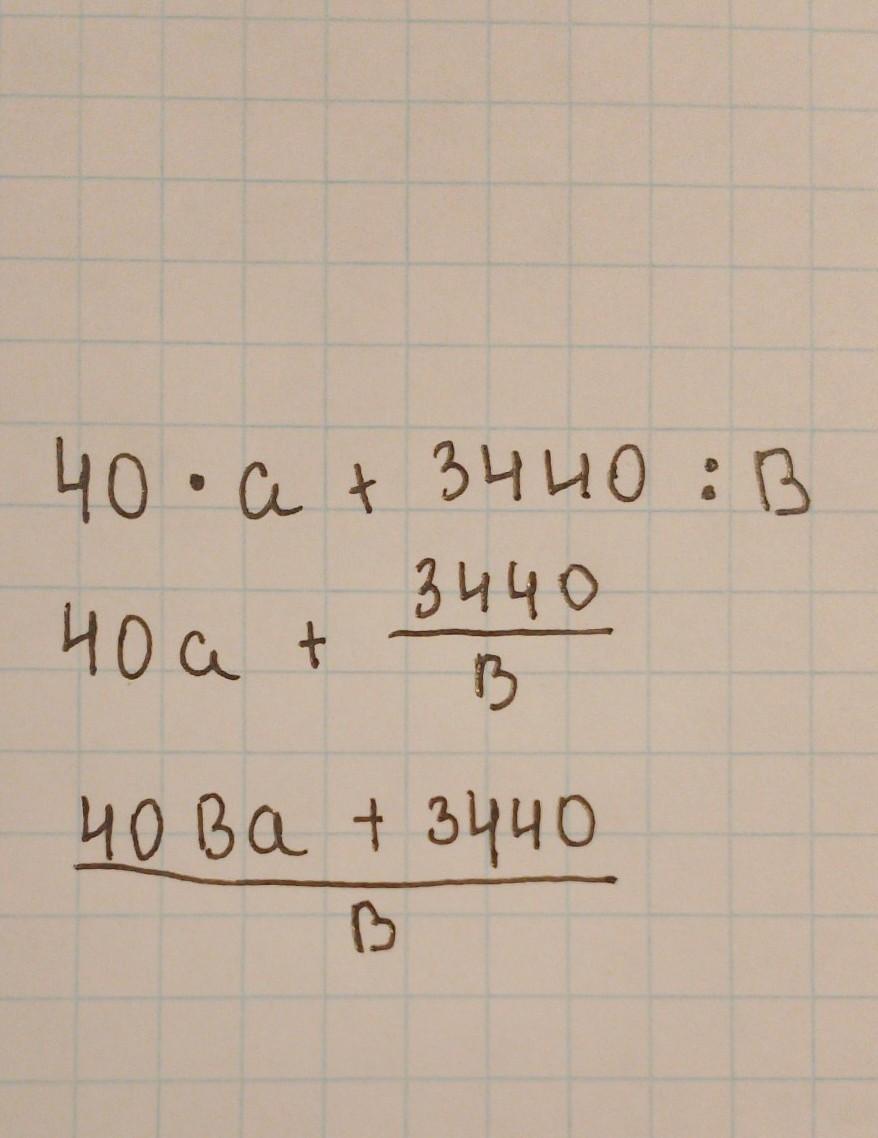 40 · a + 3440 : B
40a + 3440/B
40Ba + 3440
B